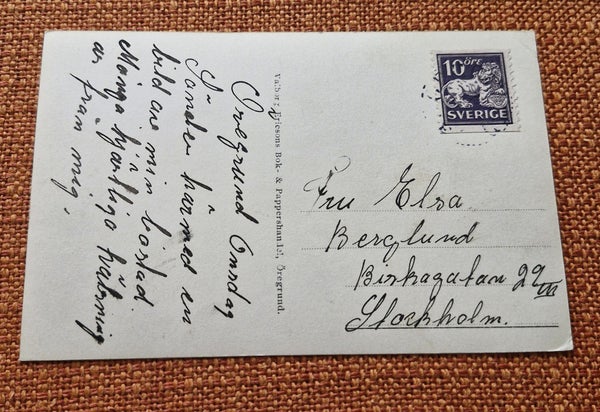 Öregrund Onsdag
Sänder härmed en
bild av min bostad.
Många hjärtliga hälsning
ar från mig,
Valborg Ericsons Bok- & Pappershandel, Öregrund.
10 ÖRE
SVERIGE
Fru Elsa
Berglund
Birkagatan 29 III
Stockholm.